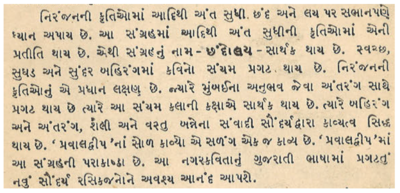 નિરંજનની કૃતિઓમાં આદિથી અંત સુધી છંદ અને લય પર સભાનપણે
ધ્યાન અપાય છે. આ સંગ્રહમાં આદિથી અંત સુધીની કૃતિઓમાં એની
પ્રતીતિ થાય છે. એથી સંગ્રહનું નામ – છંદોલય – સાર્થક થાય છે. સ્વચ્છ,
સુઘડ અને સુંદર બહિરંગમાં કવિનો સંયમ પ્રગટ થાય છે. નિરંજનની
કૃતિઓનું એ પ્રધાન લક્ષણ છે. જ્યારે મુંબઈના અનુભવ જેવા અંતરંગ સાથે
પ્રગટ થાય છે ત્યારે આ સંયમ કલાની કક્ષાએ સાર્થક થાય છે. ત્યારે બહિરંગ
અને અંતરંગ, શૈલી અને વસ્તુ બન્નેના સંવાદી સૌંદર્યદ્વારા કાવ્યત્વ સિદ્ધ
થાય છે. 'પ્રવાલદ્વીપ'નાં સોળ કાવ્યો એ સળંગ એકજ કાવ્ય છે. 'પ્રવાલદ્વીપ'માં
આ સંગ્રહની પરાકાષ્ઠા છે. આ નગરકવિતાનું ગુજરાતી ભાષામાં પ્રગટતું
નવું સૌંદર્ય રસિકજનોને અવશ્ય આનંદ આપશે.